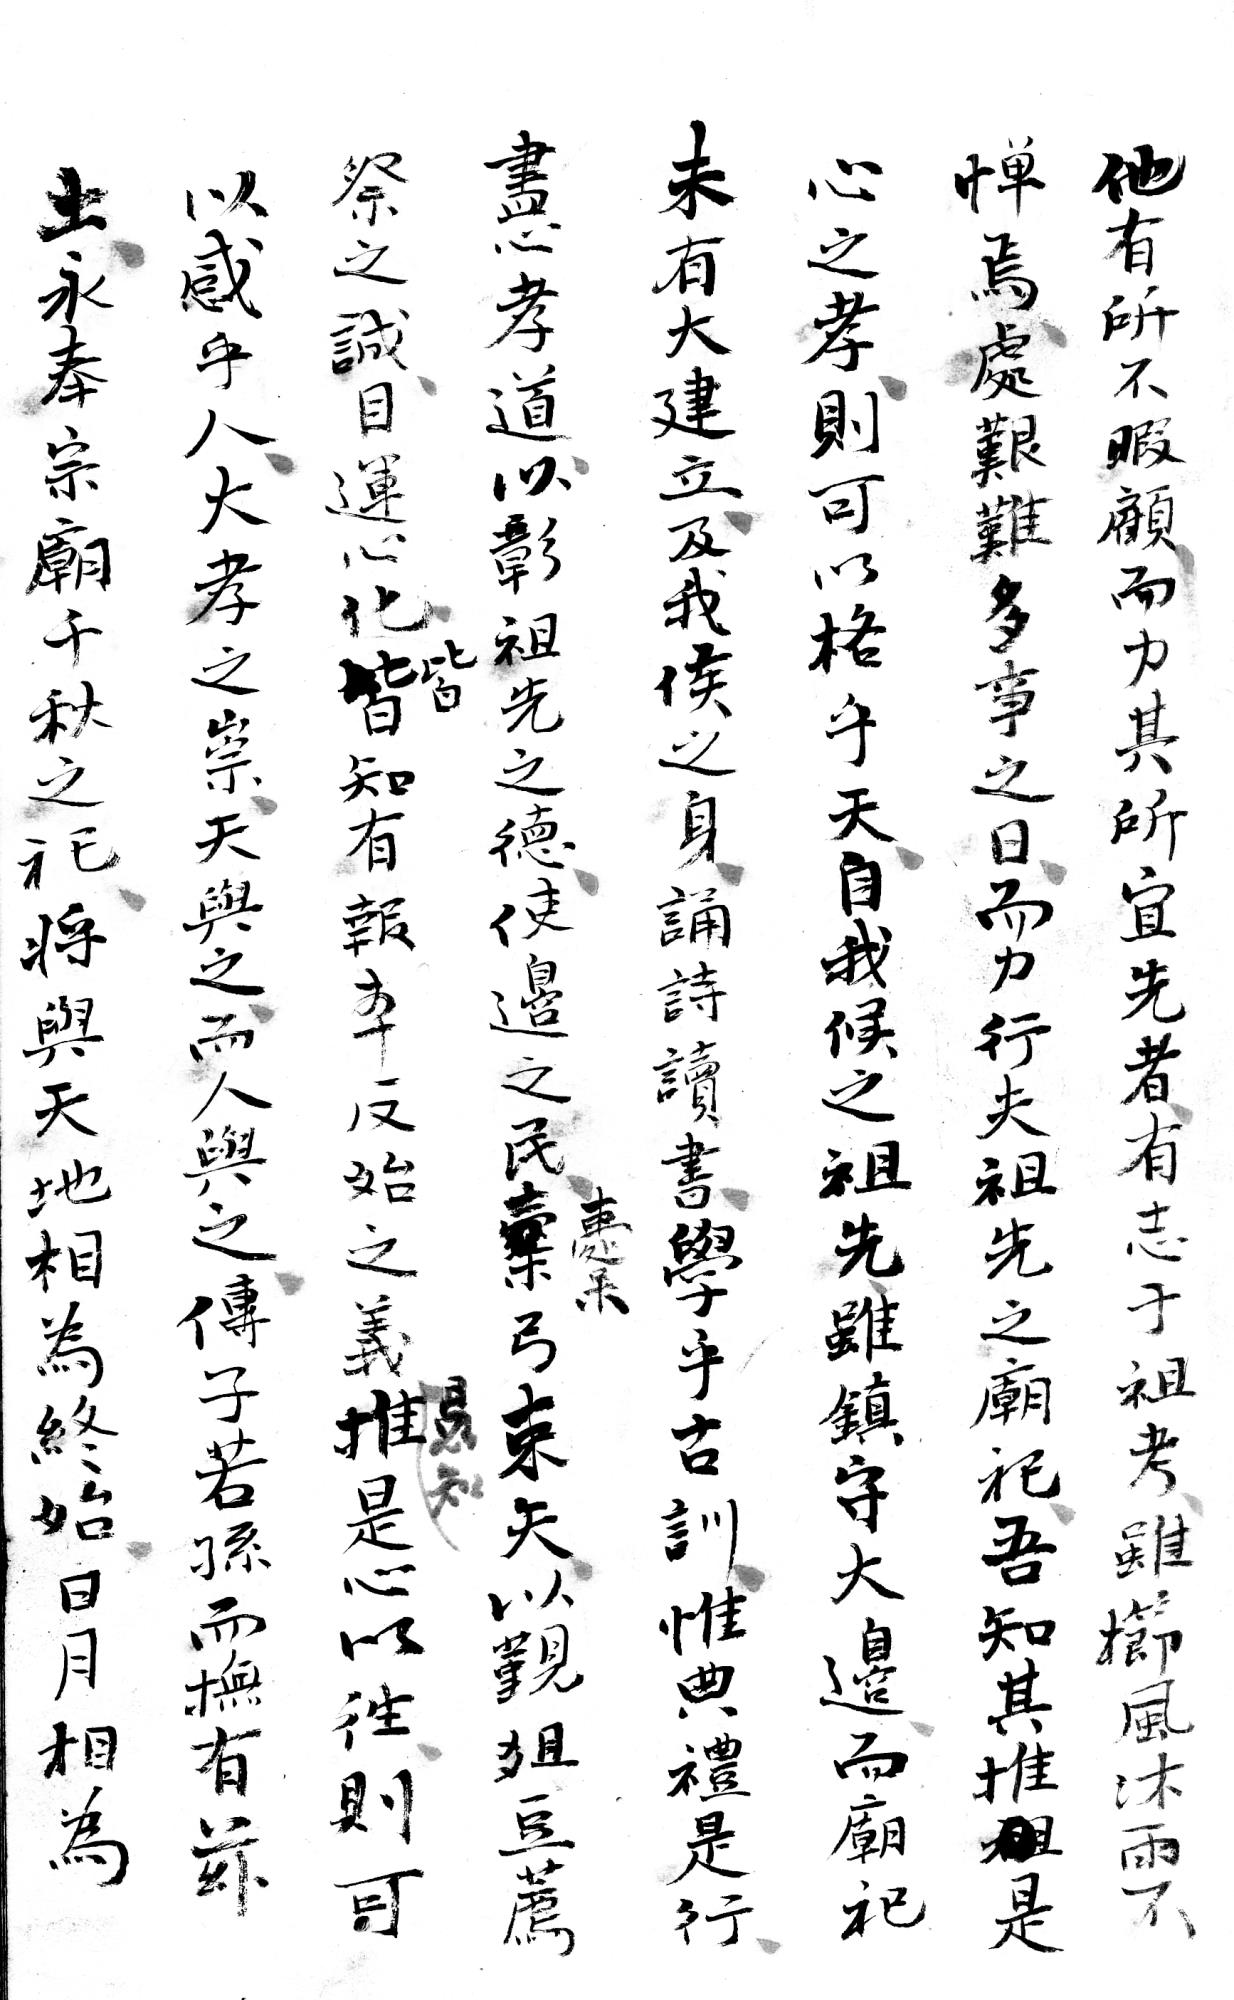 他有所不暇顧而力其所宜先者有志于祖考雖櫛風沐雨不
惮焉處艱難多事之日而力行夫祖先之廟祀吾知其推是
心之孝則可以格乎天自我候之祖先雖鎮守大邊而廟祀
未有大建立及我侯之身誦詩讀書學乎古訓惟典禮是行
盡心孝道以彰祖先之德使邊之民櫜弓束矢以觀俎豆薦
櫜
祭之誠目運心化皆知有報本反始之義推是心以往則可
皆
知
以感乎人大孝之崇天與之而人與之傳子若孫而撫有茲
土永奉宗廟千秋之祀將與天地相為終始日月相為